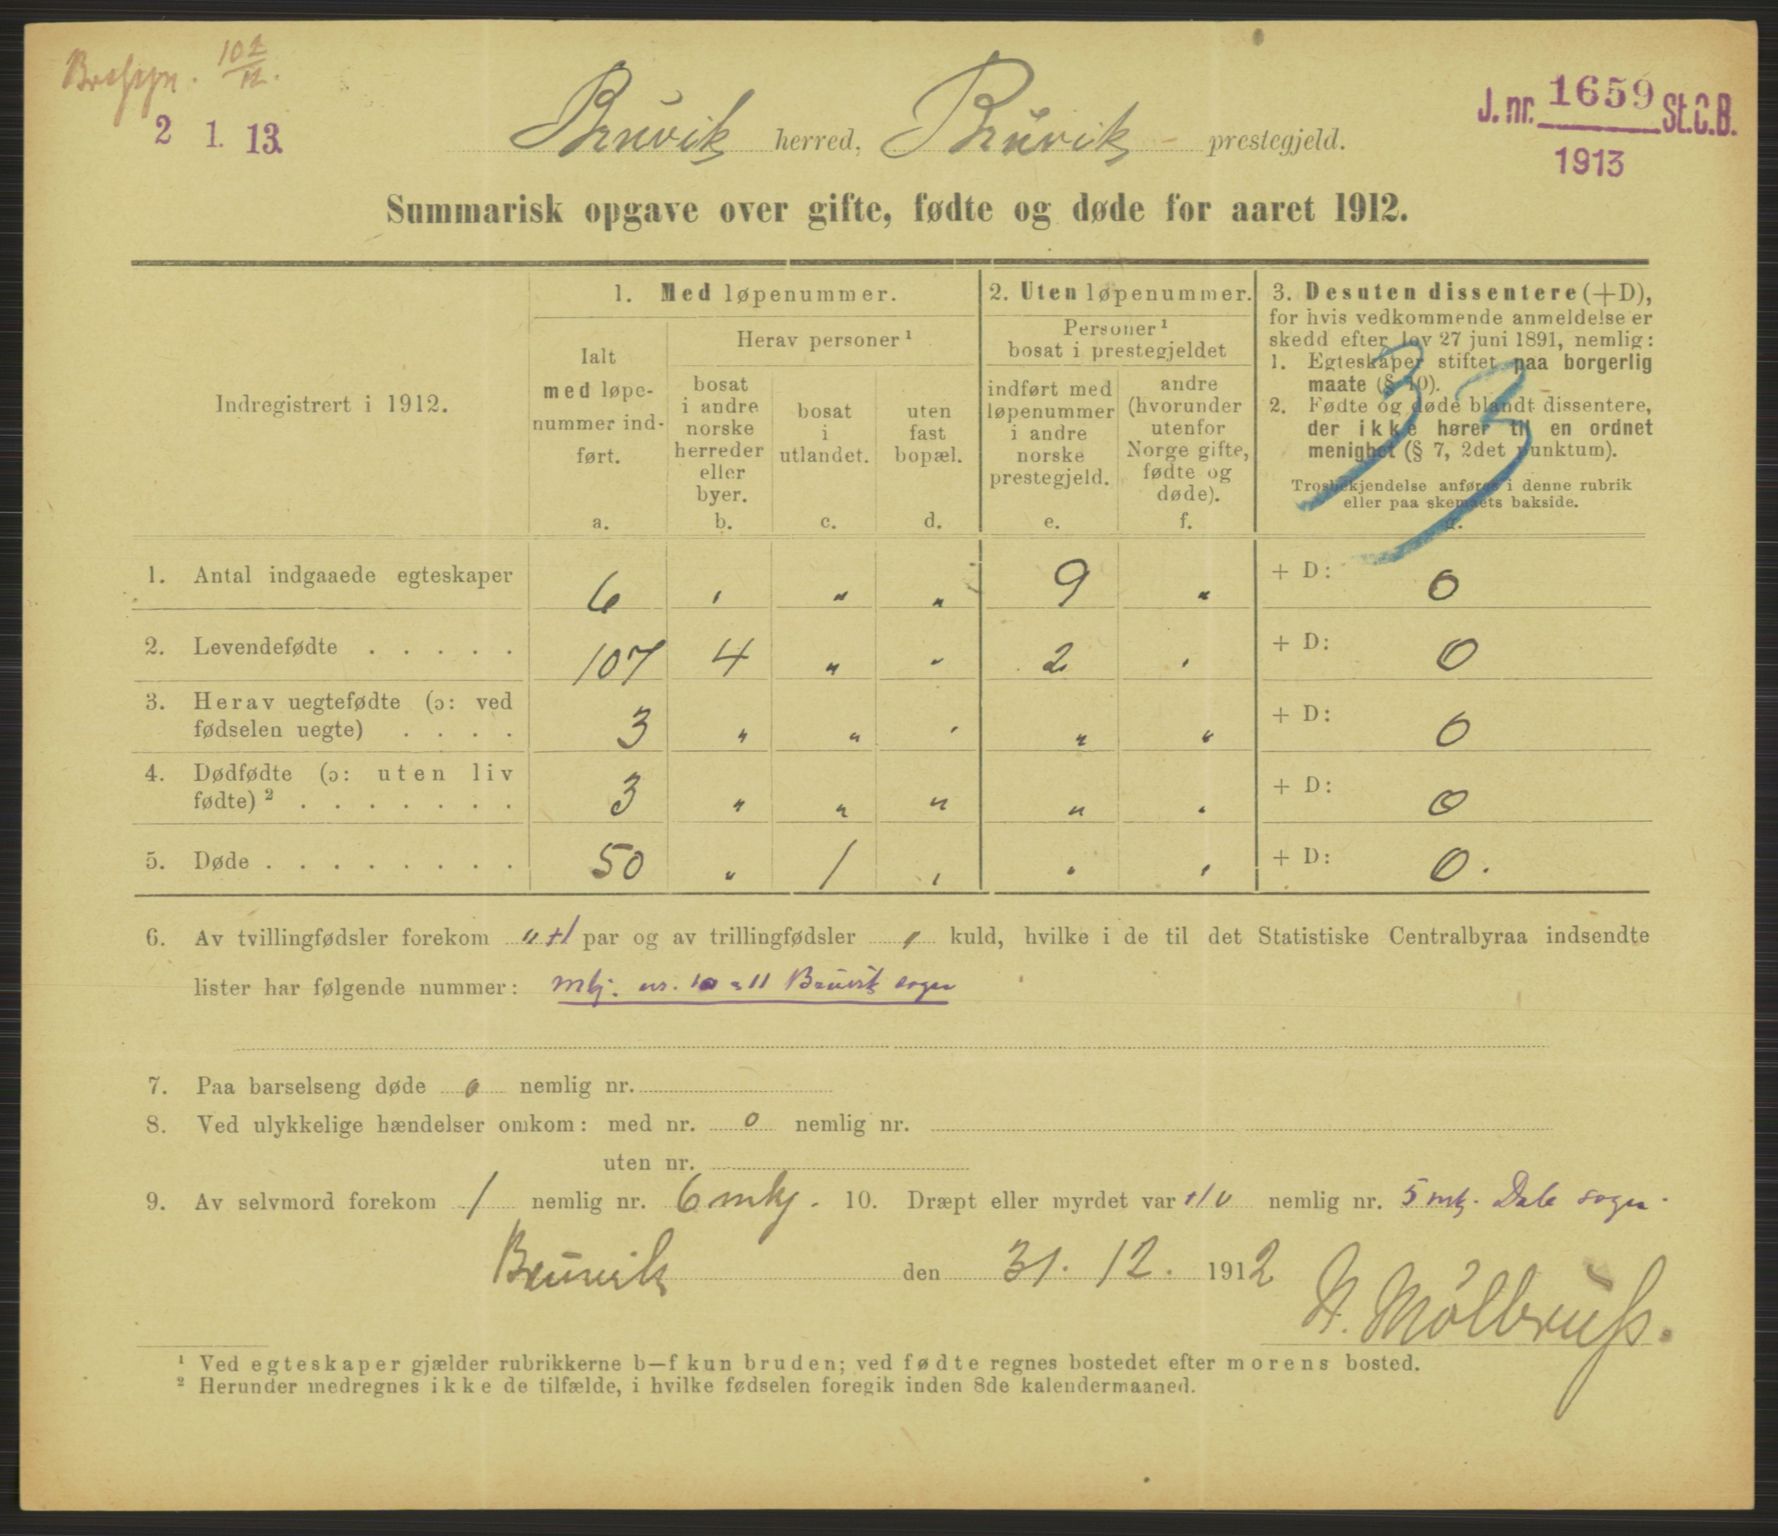 102/12.
2 1. 13.
J. nr. 1659 St.C.B.
1913
Bruvik herred, Bruvik prestegjeld.
Summarisk opgave over gifte, fødte og døde for aaret 1912.
Indregistrert i 1912.
1. Med løpenummer.
Ialt
med løpe-
nummer ind-
ført.
a.
Herav personer ¹
bosat
i andre
norske
herreder
eller
byer.
b.
bosat
i
utlandet.
c.
uten
fast
bopæl.
d.
2. Uten løpenummer.
Personer ¹
bosat i prestegjeldet
indført med
løpenummer
i andre
norske
prestegjeld.
e.
andre
(hvorunder
utenfor
Norge gifte,
fødte og
døde).
f.
3. Desuten dissentere (+D),
for hvis vedkommende anmeldelse er
skedd efter lov 27 juni 1891, nemlig:
1. Egteskaper stiftet paa borgerlig
maate (§ 10).
2. Fødte og døde blandt dissentere,
der ikke hører til en ordnet
menighet (§ 7, 2det punktum).
Trosbekjendelse anføres i denne rubrik
eller paa skemaets bakside.
g.
33
1. Antal indgaaede egteskaper 6 " " " 9 " + D: 0
2. Levendefødte . . . . . 107 4 " " 2 " + D: 0
3. Herav uegtefødte (ɔ: ved
fødselen uegte) . . . . 3 " " " " " + D: 0
4. Dødfødte (ɔ: uten liv
fødte) ² . . . . . . . 3 " " " " " + D: 0
5. Døde . . . . . . . . 50 " 1 " " " + D: 0.
6. Av tvillingfødsler forekom " +1 par og av trillingfødsler " kuld, hvilke i de til det Statistiske Centralbyraa indsendte
lister har følgende nummer: mkj. nr. 10 = 11 Bruvik sogn
7. Paa barselseng døde 0 nemlig nr.
8. Ved ulykkelige hændelser omkom: med nr. 0 nemlig nr.
uten nr.
9. Av selvmord forekom 1 nemlig nr. 6 mkj. 10. Dræpt eller myrdet var +1 0 nemlig nr. 5 mk. Dale sogn.
Bruvik den 31. 12. 1912
¹ Ved egteskaper gjælder rubrikkerne b—f kun bruden; ved fødte regnes bostedet efter morens bosted.
² Herunder medregnes ikke de tilfælde, i hvilke fødselen foregik inden 8de kalendermaaned.